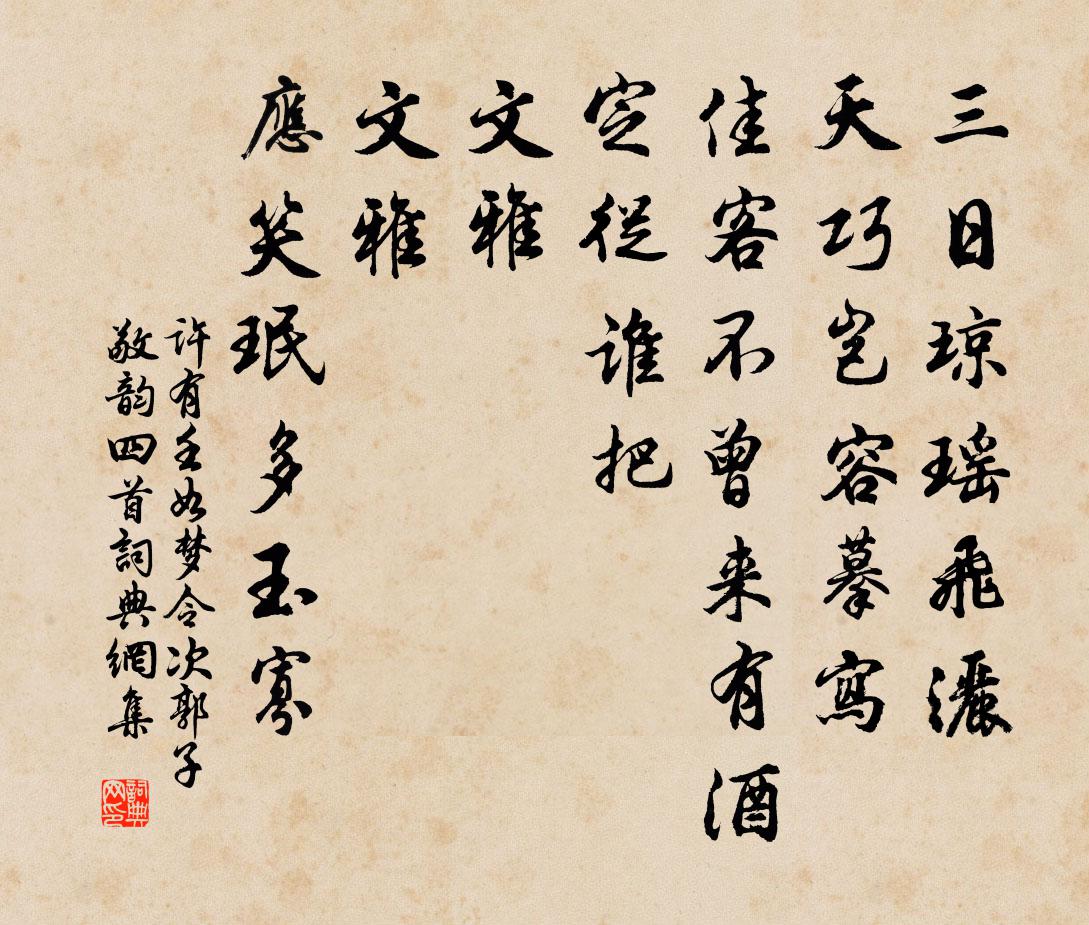 三日琼瑶飛灑
天巧岂容摹寫
佳客不曾来有酒
定從誰把
文雅
文雅
應笑珉多玉寡
許有壬如梦令次郭子
敬韵四首詞典網集
詞典网印